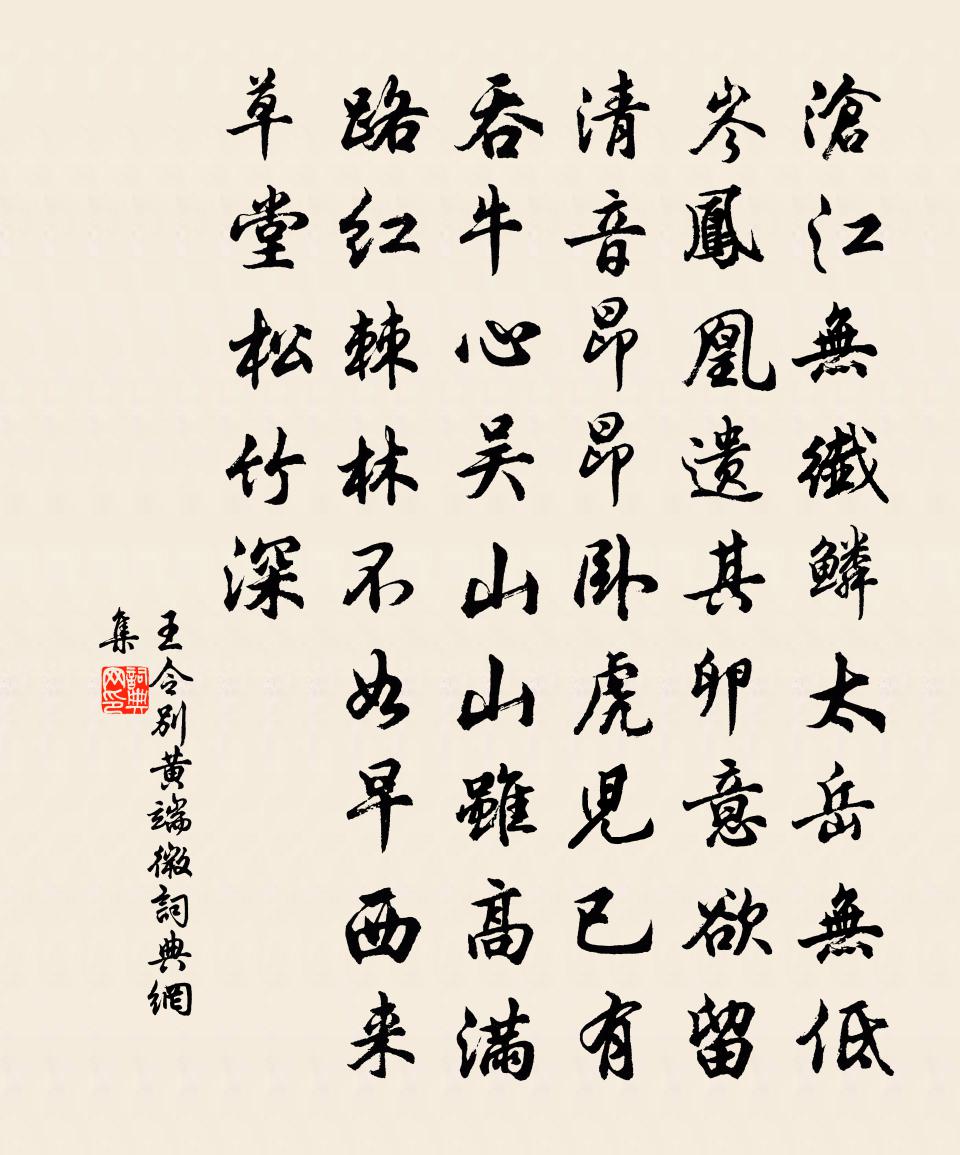 滄江無纖鱗太岳無低
岑鳳凰遺其卵意欲留
清音昂昂卧虎児已有
吞牛心吴山山雖高滿
路红棘林不如早西来
草堂松竹深
王令别黄端微詞典網
集
詞典
网印